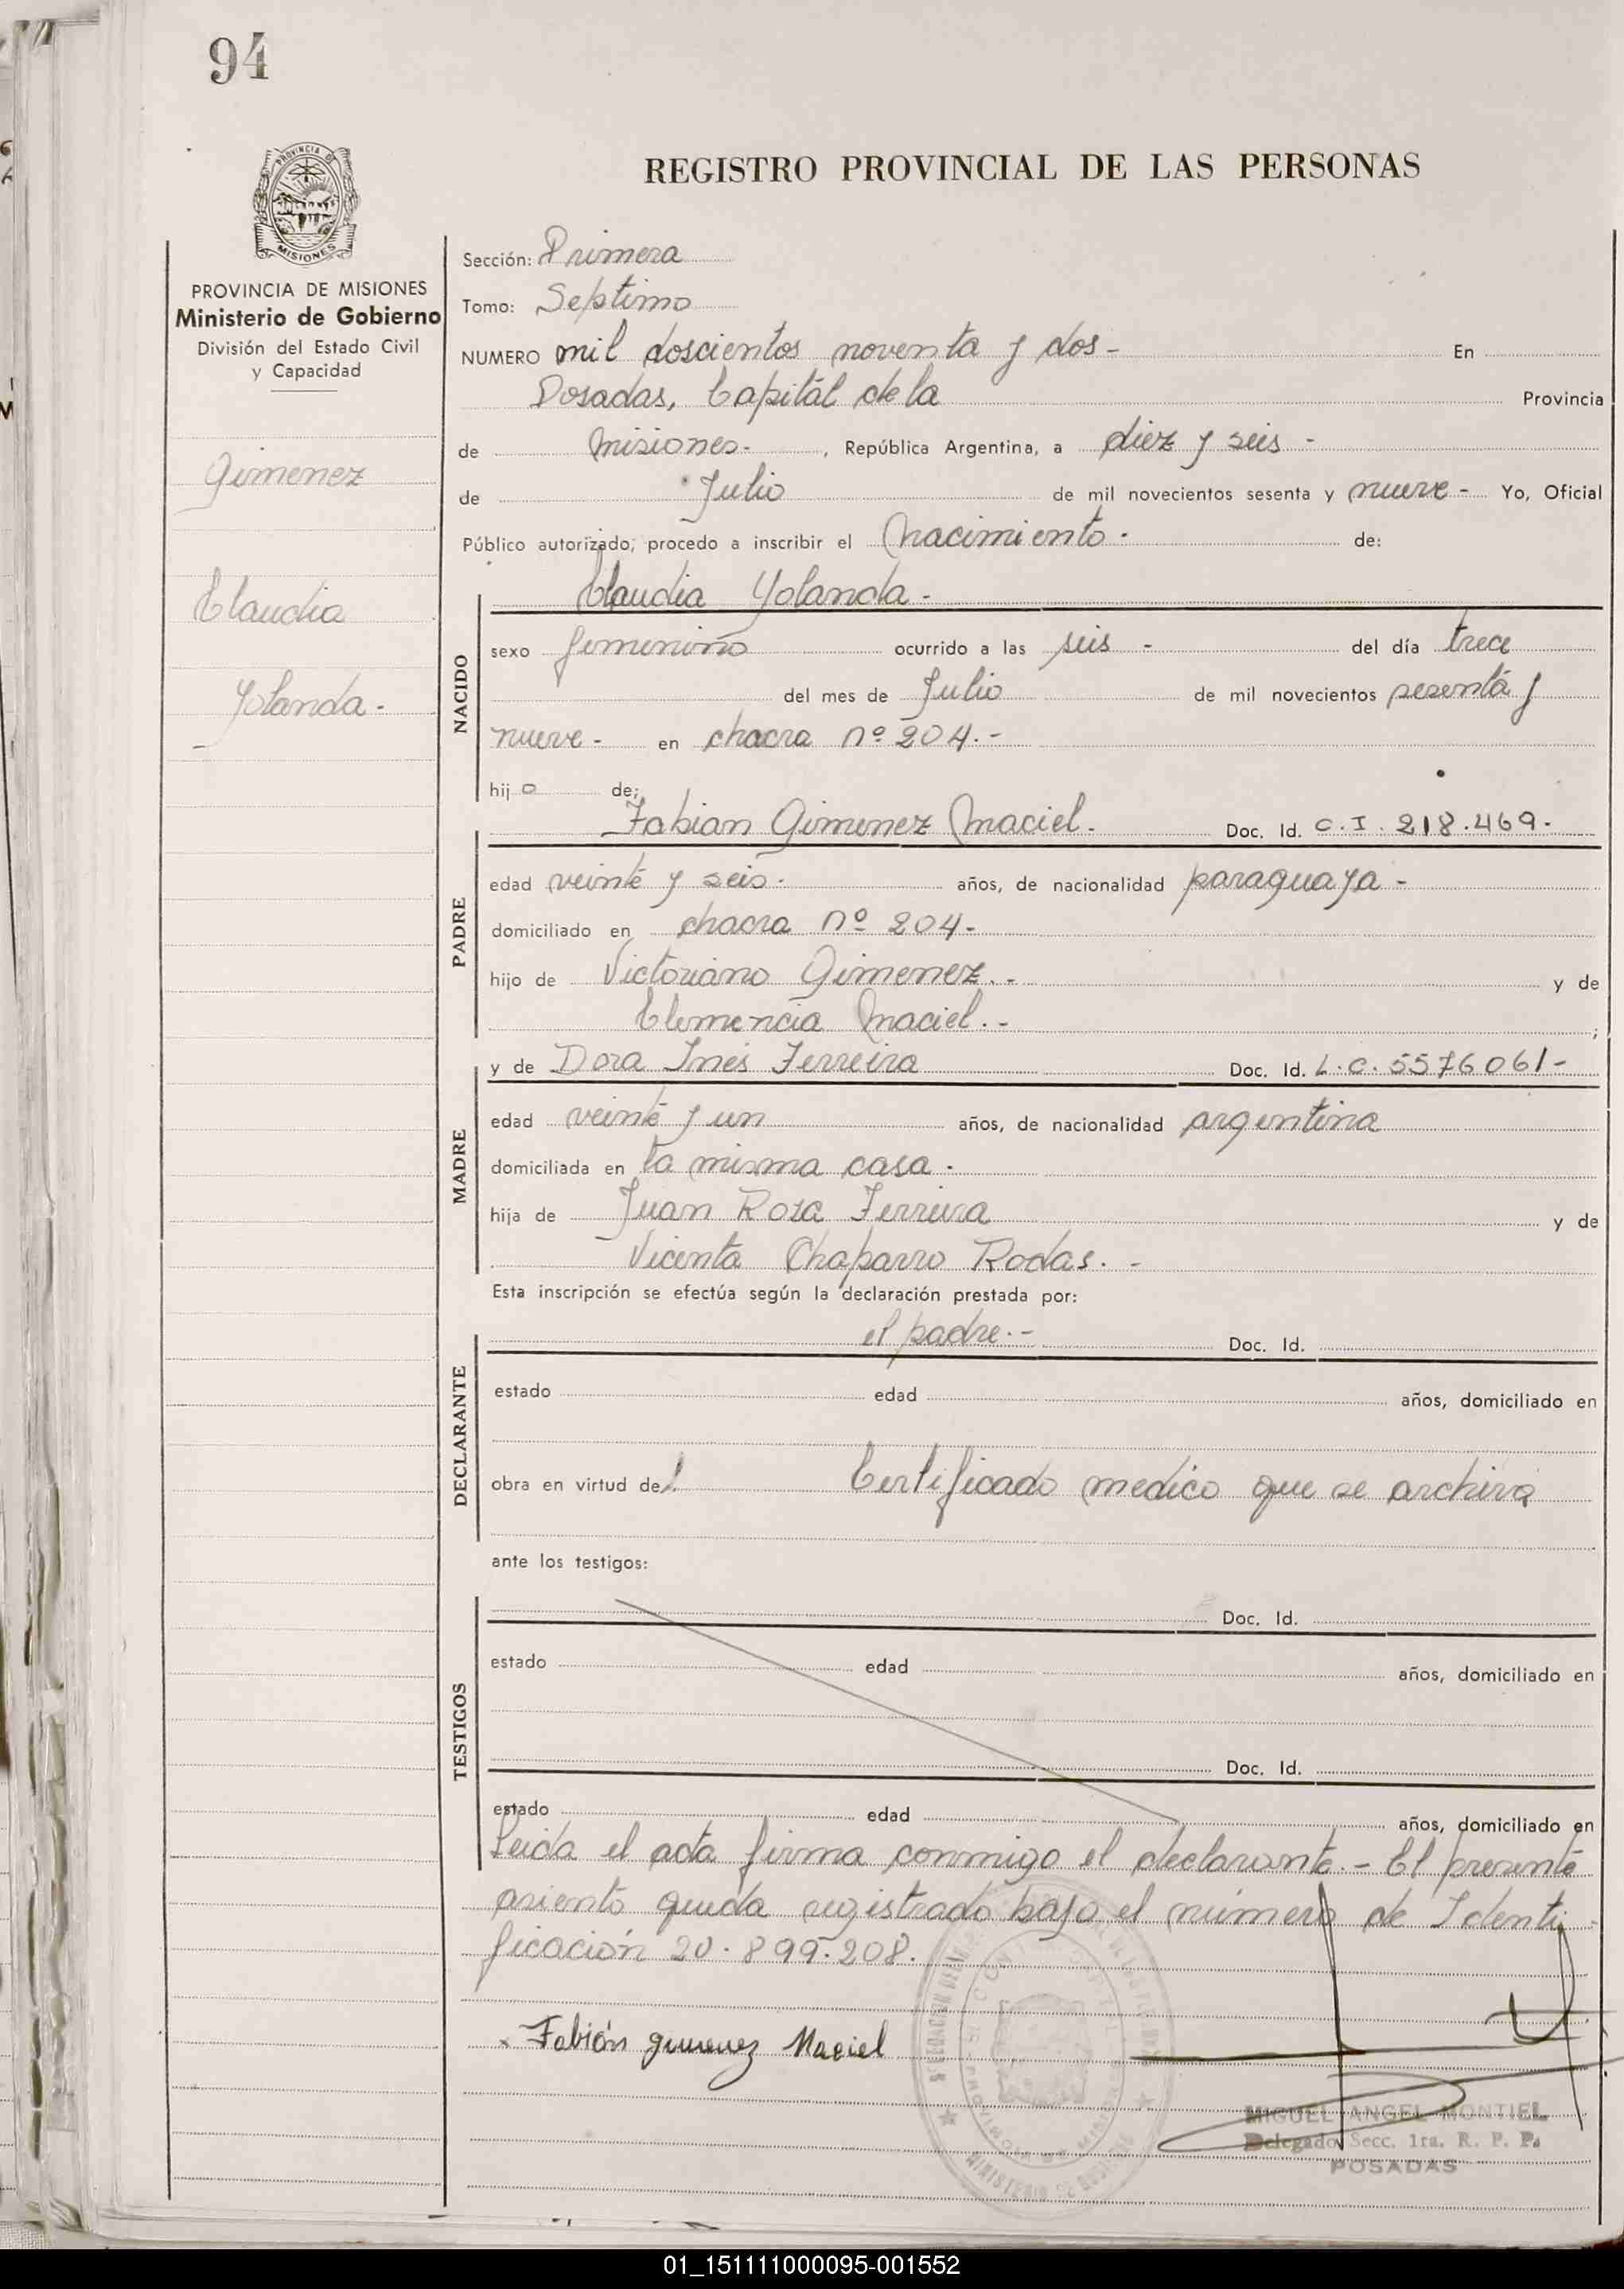 94
PROVINCIA DE
MISIONES
REGISTRO PROVINCIAL DE LAS PERSONAS
PROVINCIA DE MISIONES
Ministerio de Gobierno
División del Estado Civil
y Capacidad
Gimenez
Claudia
Yolanda.-
Sección: Primera
Tomo: Septimo
NUMERO mil doscientos noventa y dos- En
Posadas, Capital de la Provincia
de Misiones-, República Argentina, a diez y seis -
de Julio de mil novecientos sesenta y nueve- Yo, Oficial
Público autorizado, procedo a inscribir el Nacimiento- de:
Claudia Yolanda-
NACIDO
sexo femenino ocurrido a las seis - del día trece
del mes de Julio de mil novecientos sesenta y
nueve- en chacra nº 204.-
hijo de:
Fabian Gimenez Maciel. Doc. Id. C.I. 218.469-
PADRE
edad veinte y seis. años, de nacionalidad paraguaya -
domiciliado en chacra nº 204-
hijo de Victoriano Gimenez.- y de
Clemencia Maciel.-;
y de Dora Inés Ferreira Doc. Id. L.C. 5576061-
MADRE
edad veinte y un años, de nacionalidad argentina
domiciliada en la misma casa.
hija de Juan Roza Ferreira y de
Vicenta Chaparro Rodas.-
Esta inscripción se efectúa según la declaración prestada por:
el padre.- Doc. Id.
DECLARANTE
estado edad años, domiciliado en
obra en virtud del Certificado medico que se archiva
ante los testigos:
TESTIGOS
Doc. Id.
estado edad años, domiciliado en
Doc. Id.
estado edad años, domiciliado en
Leida el acta firma conmigo el declarante.- El presente
asiento queda registrado bajo el número de Identi-
ficación 20.899.208.
Fabián Gimenez Maciel
MIGUEL ANGEL MONTIEL
Delegado Secc. 1ra. R. P. P.
POSADAS
01_151111000095-001552